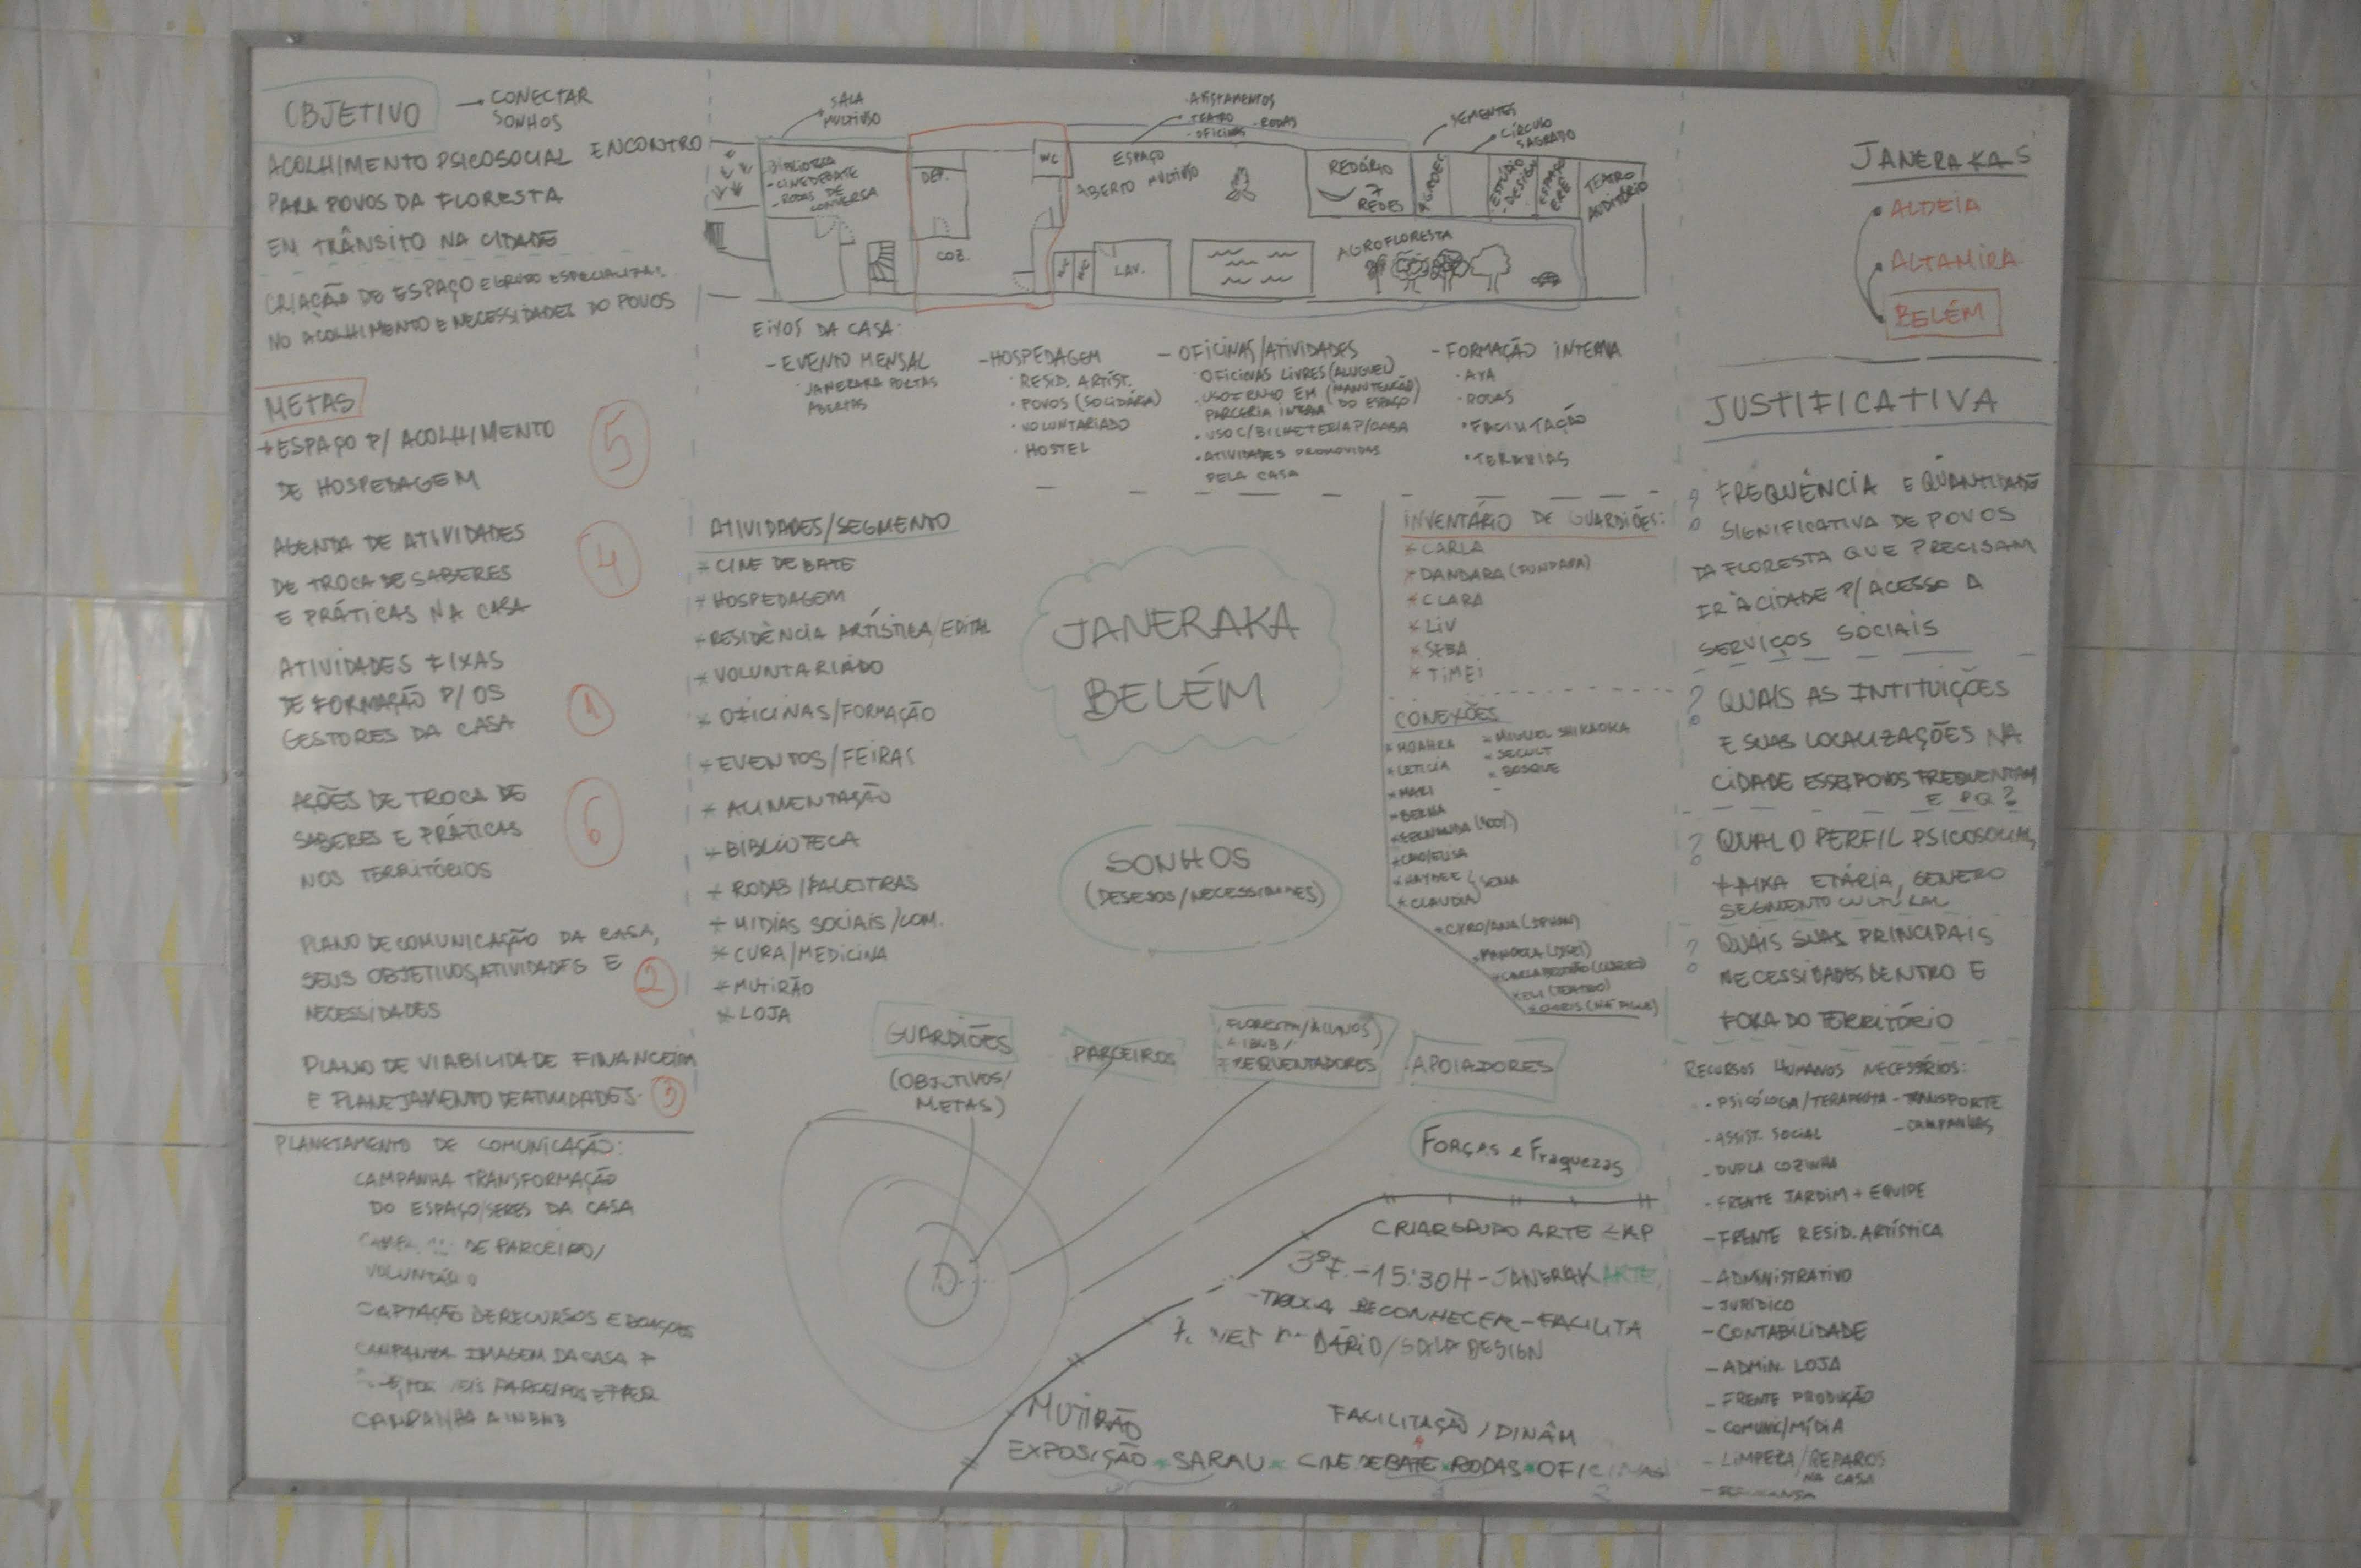 OBJETIVO → CONECTAR
SONHOS
ACOLHIMENTO PSICOSOCIAL ENCONTRO
PARA POVOS DA FLORESTA
EM TRÂNSITO NA CIDADE
CRIAÇÃO DE ESPAÇO E GRUPO
NO ACOLHIMENTO E NECESSIDADES DO POVOS
METAS
→ ESPAÇO P/ ACOLHIMENTO
DE HOSPEDAGEM
5
AGENDA DE ATIVIDADES
DE TROCA DE SABERES
E PRÁTICAS NA CASA
4
ATIVIDADES FIXAS
DE FORMAÇÃO P/ OS
GESTORES DA CASA
1
AÇÕES DE TROCA DE
SABERES E PRÁTICAS
NOS TERRITÓRIOS
6
PLANO DE COMUNICAÇÃO DA CASA,
SEUS OBJETIVOS, ATIVIDADES E
NECESSIDADES
2
PLANO DE VIABILIDADE FINANCEIRA
E PLANEJAMENTO DE ATIVIDADES.
3
PLANEJAMENTO DE COMUNICAÇÃO:
CAMPANHA TRANSFORMAÇÃO
DO ESPAÇO/SERES DA CASA
DE PARCEIRO/
VOLUNTÁRIO
CAPTAÇÃO DE RECURSOS E DOAÇÕES
CAMPANHA IMAGEM DA CASA
PARCEIROS
CAMPANHA AIRBNB
SALA
MULTIUSO
- BIBLIOTECA
- CINEDEBATE
- RODAS DE
CONVERSA
DEP.
COZ.
WC
WC
WC
LAV.
TEATRO
- OFICINAS - RODAS
ESPAÇO
ABERTO MULTIUSO
REDÁRIO
7
REDES
SEMENTES
CÍRCULO
SAGRADO
ESTÚDIO
- DESIGN
ESPAÇO
ERÊ
TEATRO
AUDITÓRIO
AGROFLORESTA
EIXOS DA CASA:
- EVENTO MENSAL
· JANERAKA PORTAS
ABERTAS
- HOSPEDAGEM
· RESID. ARTÍST.
· POVOS (SOLIDÁRIA)
· VOLUNTARIADO
· HOSTEL
- OFICINAS/ATIVIDADES
· OFICINAS LIVRES (ALUGUEL)
· USO EM (MANUTENÇÃO
PARCERIA INTERA DO ESPAÇO)
· USO C/ BILHETERIA P/ CASA
· ATIVIDADES PROMOVIDAS
PELA CASA
- FORMAÇÃO INTERNA
· AYA
· RODAS
· FACILITAÇÃO
· TERAPIAS
ATIVIDADES/SEGMENTO
* CINE DEBATE
* HOSPEDAGEM
* RESIDÊNCIA ARTÍSTICA/EDITAL
* VOLUNTARIADO
* OFICINAS/FORMAÇÃO
* EVENTOS/FEIRAS
* ALIMENTAÇÃO
* BIBLIOTECA
* RODAS/PALESTRAS
* MIDÍAS SOCIAIS/COM.
* CURA/MEDICINA
* MUTIRÃO
* LOJA
JANERAKA
BELÉM
SONHOS
(DESEJOS/NECESSIDADES)
GUARDIÕES
(OBJETIVOS/
METAS)
PARCEIROS
FLORESTA/ALUNOS
FREQUENTADORES
APOIADORES
INVENTÁRIO DE GUARDIÕES:
* CARLA
* DANDARA
* CLARA
* LIV
* SEBA
* TIMEI
CONEXÕES
* MOAHRA
* LETICIA
* MARI
* BERNA
* FERNANDA
* CAIO/ELISA
* HAYDEE
* CLAUDIA
* MIGUEL SHIKAOKA
* SECULT
* BOSQUE
* CYRO/ANA (IPHAN)
* ELI (TEATRO)
Forças e Fraquezas
CRIAR GRUPO ARTE ZAP
3ªF. - 15:30H - JANERAKARTE
RECONHECER - FACILITA
DÁRIO/SALA DESIGN
MUTIRÃO
FACILITAÇÃO/DINÂM
EXPOSIÇÃO * SARAU * CINE DEBATE * RODAS * OFICINAS
JANERAKAS
ALDEIA
ALTAMIRA
BELÉM
JUSTIFICATIVA
? FREQUÊNCIA E QUANTIDADE
SIGNIFICATIVA DE POVOS
DA FLORESTA QUE PRECISAM
IR À CIDADE P/ ACESSO A
SERVIÇOS SOCIAIS
? QUAIS AS INTITUIÇÕES
E SUAS LOCALIZAÇÕES NA
CIDADE ESSES POVOS FREQUENTAM
E PQ?
? QUAL O PERFIL PSICOSOCIAL,
FAIXA ETÁRIA, GENERO
SEGMENTO CULTURAL
? QUAIS SUAS PRINCIPAIS
NECESSIDADES DENTRO E
FORA DO TERRITÓRIO
RECURSOS HUMANOS NECESSÁRIOS:
- PSICÓLOGA/TERAPEUTA - TRANSPORTE
- ASSIST. SOCIAL - CAMPANHAS
- DUPLA COZINHA
- FRENTE JARDIM + EQUIPE
- FRENTE RESID. ARTÍSTICA
- ADMINISTRATIVO
- JURÍDICO
- CONTABILIDADE
- ADMIN. LOJA
- FRENTE PRODUÇÃO
- COMUNIC/MÍDIA
- LIMPEZA/REPAROS
NA CASA